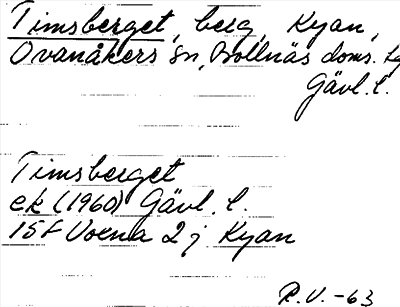 Timsberget, berg, Kyan,
Ovanåkers sn, Bollnäs doms.
Gävl. l.
Timsberget
ek (1960) Gävl. l.
15F Voxna 2j Kyan
R.V. -63